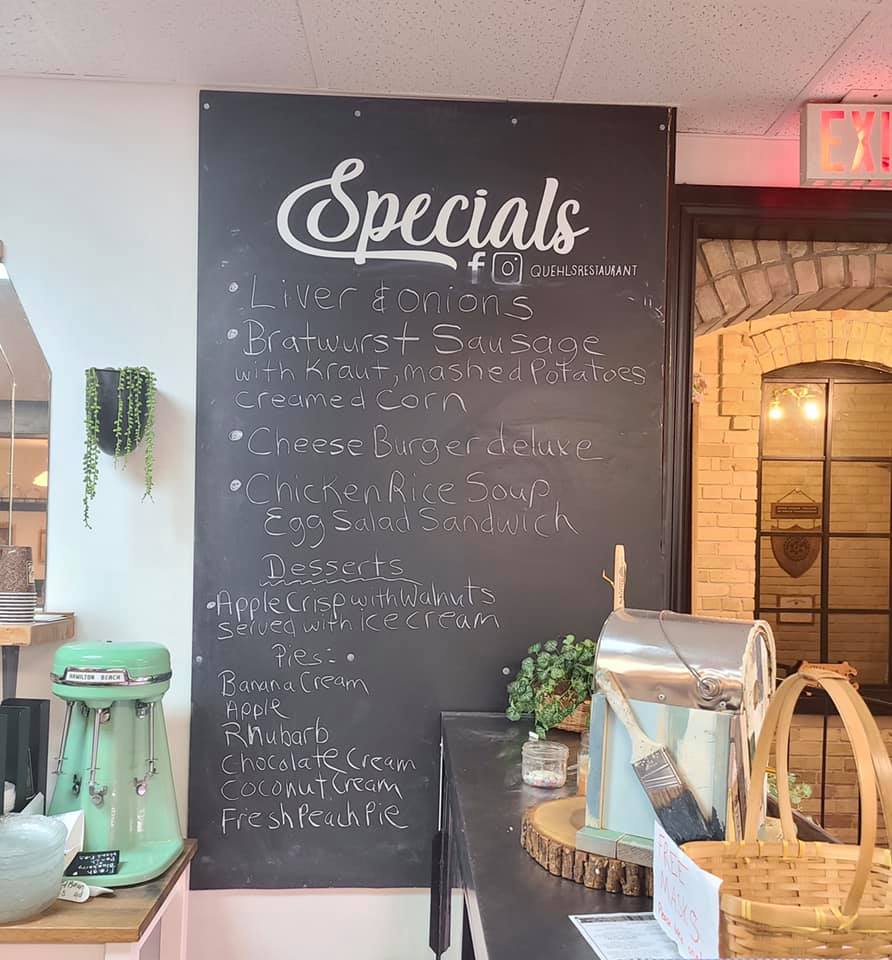 EXI
Specials
f QUEHLSRESTAURANT
• Liver & onions
• Bratwurst Sausage
with Kraut, mashed Potatoes
creamed Corn
• Cheese Burger deluxe
• Chicken Rice Soup
Egg Salad Sandwich
Desserts
• Apple Crisp with walnuts
served with ice cream
Pies:
Banana Cream
Apple
Rhubarb
Chocolate Cream
Coconut Cream
Fresh Peach Pie
HAMILTON BEACH
FREE
MASKS